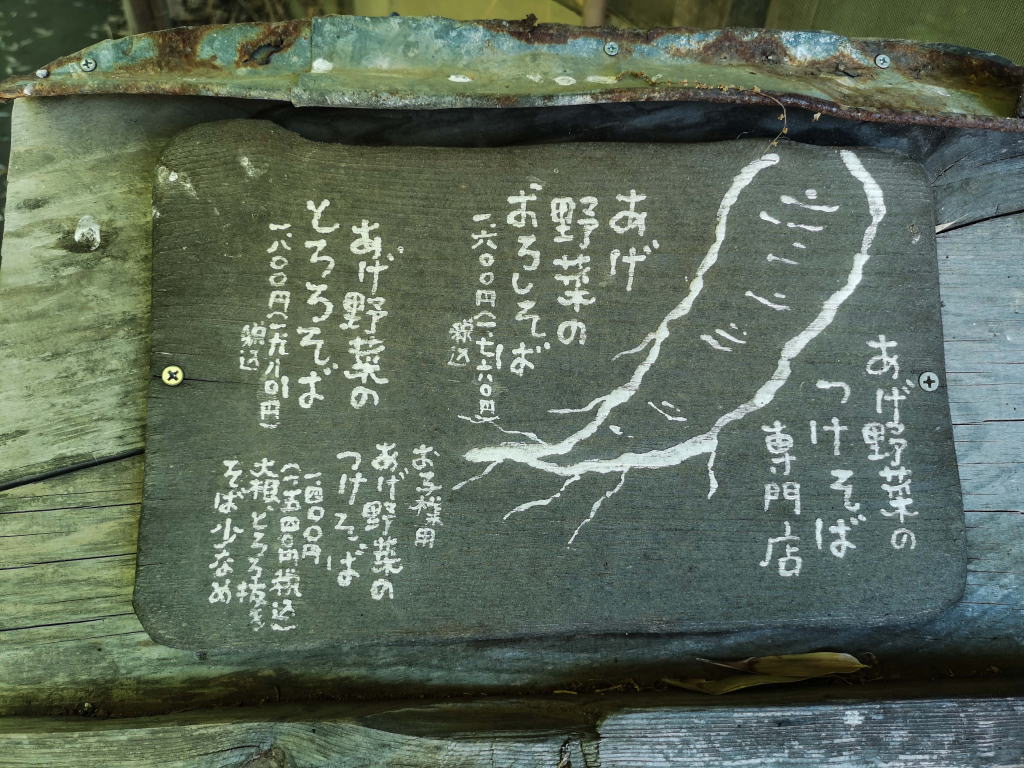 あげ野菜の
つけそば
専門店
あげ
野菜の
おろしそば
一六〇〇円(一、七六〇円)
税込
あげ野菜の
とろろそば
一八〇〇円(一九八〇円)
税込
お子様用
あげ野菜の
つけそば
一四〇〇円
(一五四〇円税込)
大根、とろろ抜き
そば少なめ